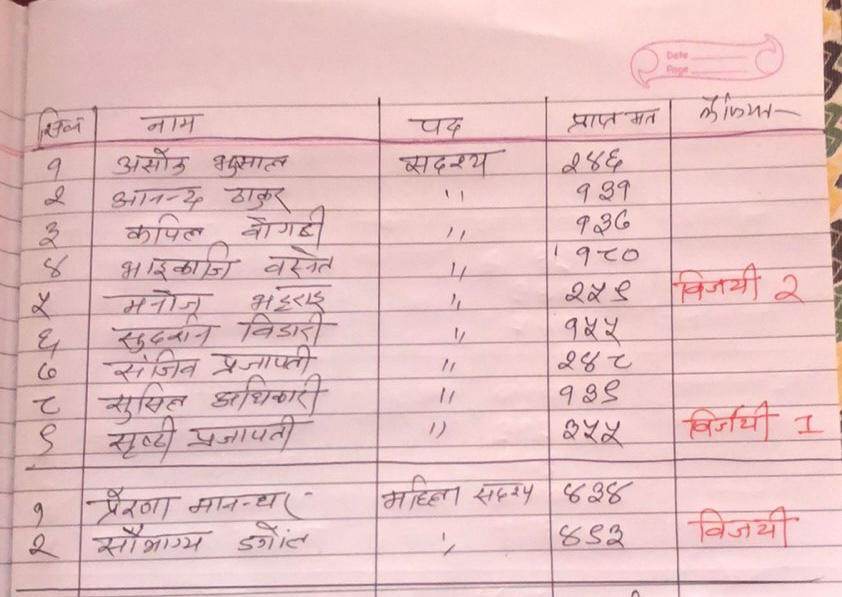 Date
Page
सि.नं नाम पद प्राप्त मत कैफियत
१ असोक भुसाल सदस्य २४६
२ आनन्द ठाकुर " १३१
३ कपिल वाग्ले " १३७
४ भाइकाजि वस्नेत " १८०
५ मनोज भट्टराई " २५९ विजयी 2
६ सुदर्शन विडारी " १५५
७ संजिव प्रजापती " २४८
८ सुसिल अधिकारी " १३९
९ सृष्टी प्रजापती " ३५५ विजयी 1
१ प्रेरणा मानन्धर महिला सदस्य ४३४
२ सौभाग्य डंगोल " ४९३ विजयी